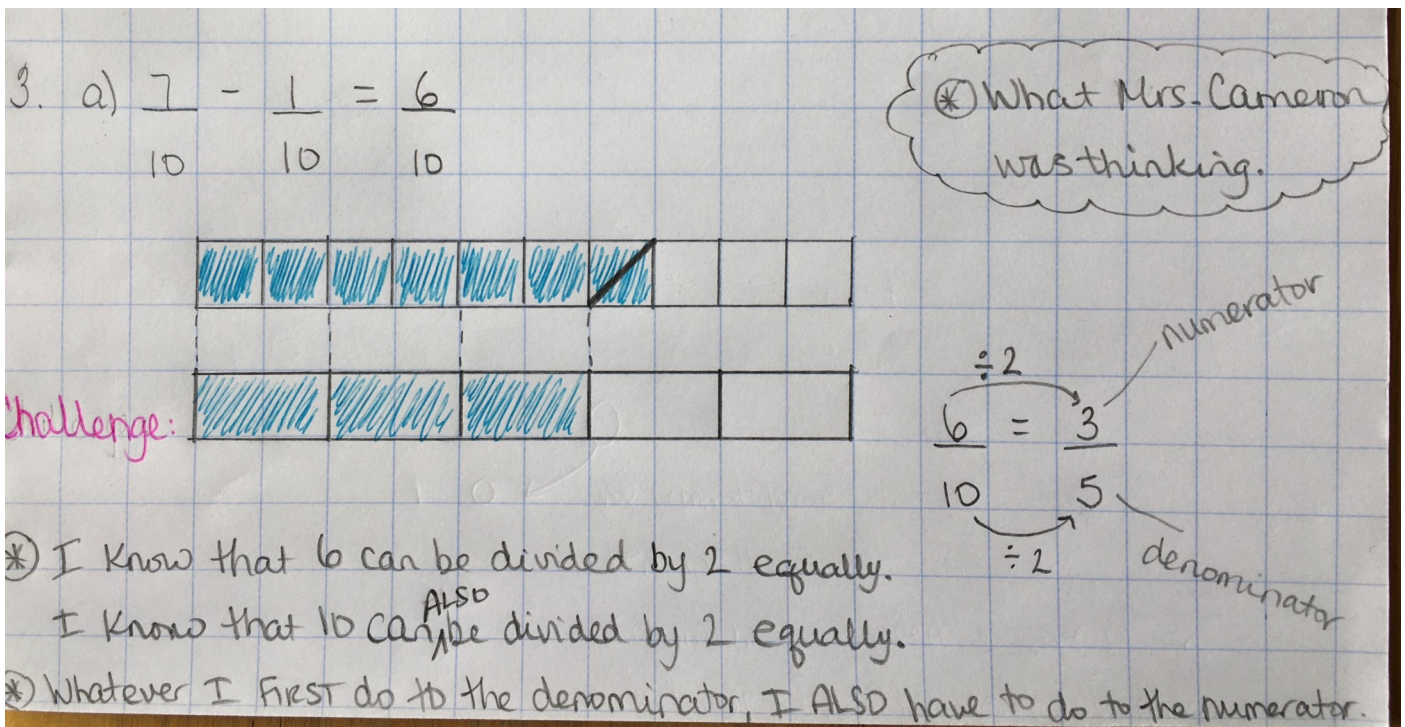 3. a) 7/10 - 1/10 = 6/10
* What Mrs. Cameron
was thinking.
Challenge:
÷2
6/10 = 3/5
÷2
numerator
denominator
* I know that 6 can be divided by 2 equally.
I know that 10 can ALSO be divided by 2 equally.
* Whatever I FIRST do to the denominator, I ALSO have to do to the numerator.